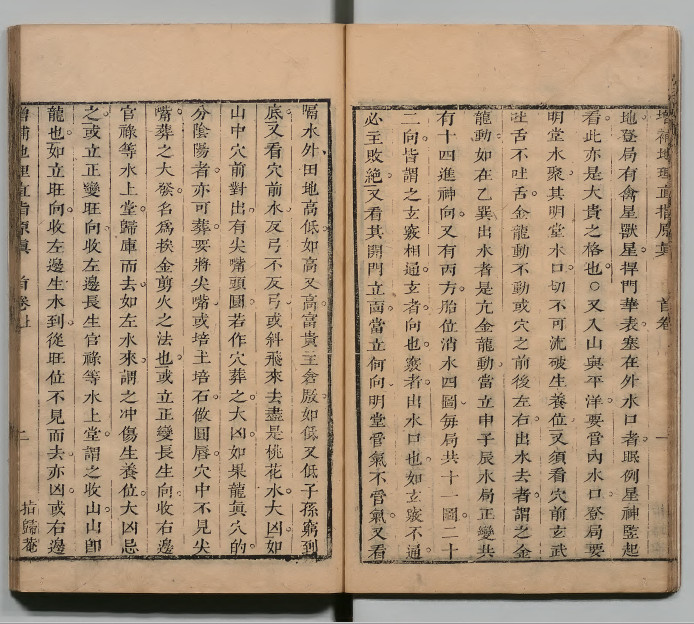 增補地理直指原真 首卷 一
地登局有禽星獸星捍門華表塞在外水口者眠倒星神監起
看此亦是大貴之格也○又入山與平洋要管內水口登局要
明堂水聚其明堂水口切不可流破生養位又須看穴前玄武
吐舌不吐舌金龍動不動或穴之前後左右出水去者謂之金
龍動如在乙巽出水者是亢金龍動當立申子辰水局正變共
有十四進神向又有丙方胎位消水四圖每局共十一圖二十
二向皆謂之玄竅相通玄者向也竅者出水口也如玄竅不通
必主敗絕又看其開門立面當立何向明堂管氣不管氣又看
隔水外田地高低如高又高富貴主倉厫如低又低子孫窮到
底又看穴前水反弓不反弓或斜飛來去盡是桃花水大凶如
山中穴前對出有尖嘴頭圓若作穴葬之大凶如果龍真穴的
分陰陽者亦可葬要將尖嘴或培土培石做圓唇穴中不見尖
嘴葬之大發名為挨金剪火之法也或立正變長生向收右邊
官祿等水上堂歸庫而去如左水來謂之冲傷生養位大凶忌
之或立正變旺向收左邊長生官祿等水上堂謂之收山山卽
龍也如立旺向收左邊生水到從旺位不見而去亦凶或右邊
增補地理直指原真 首卷上 二 指歸菴